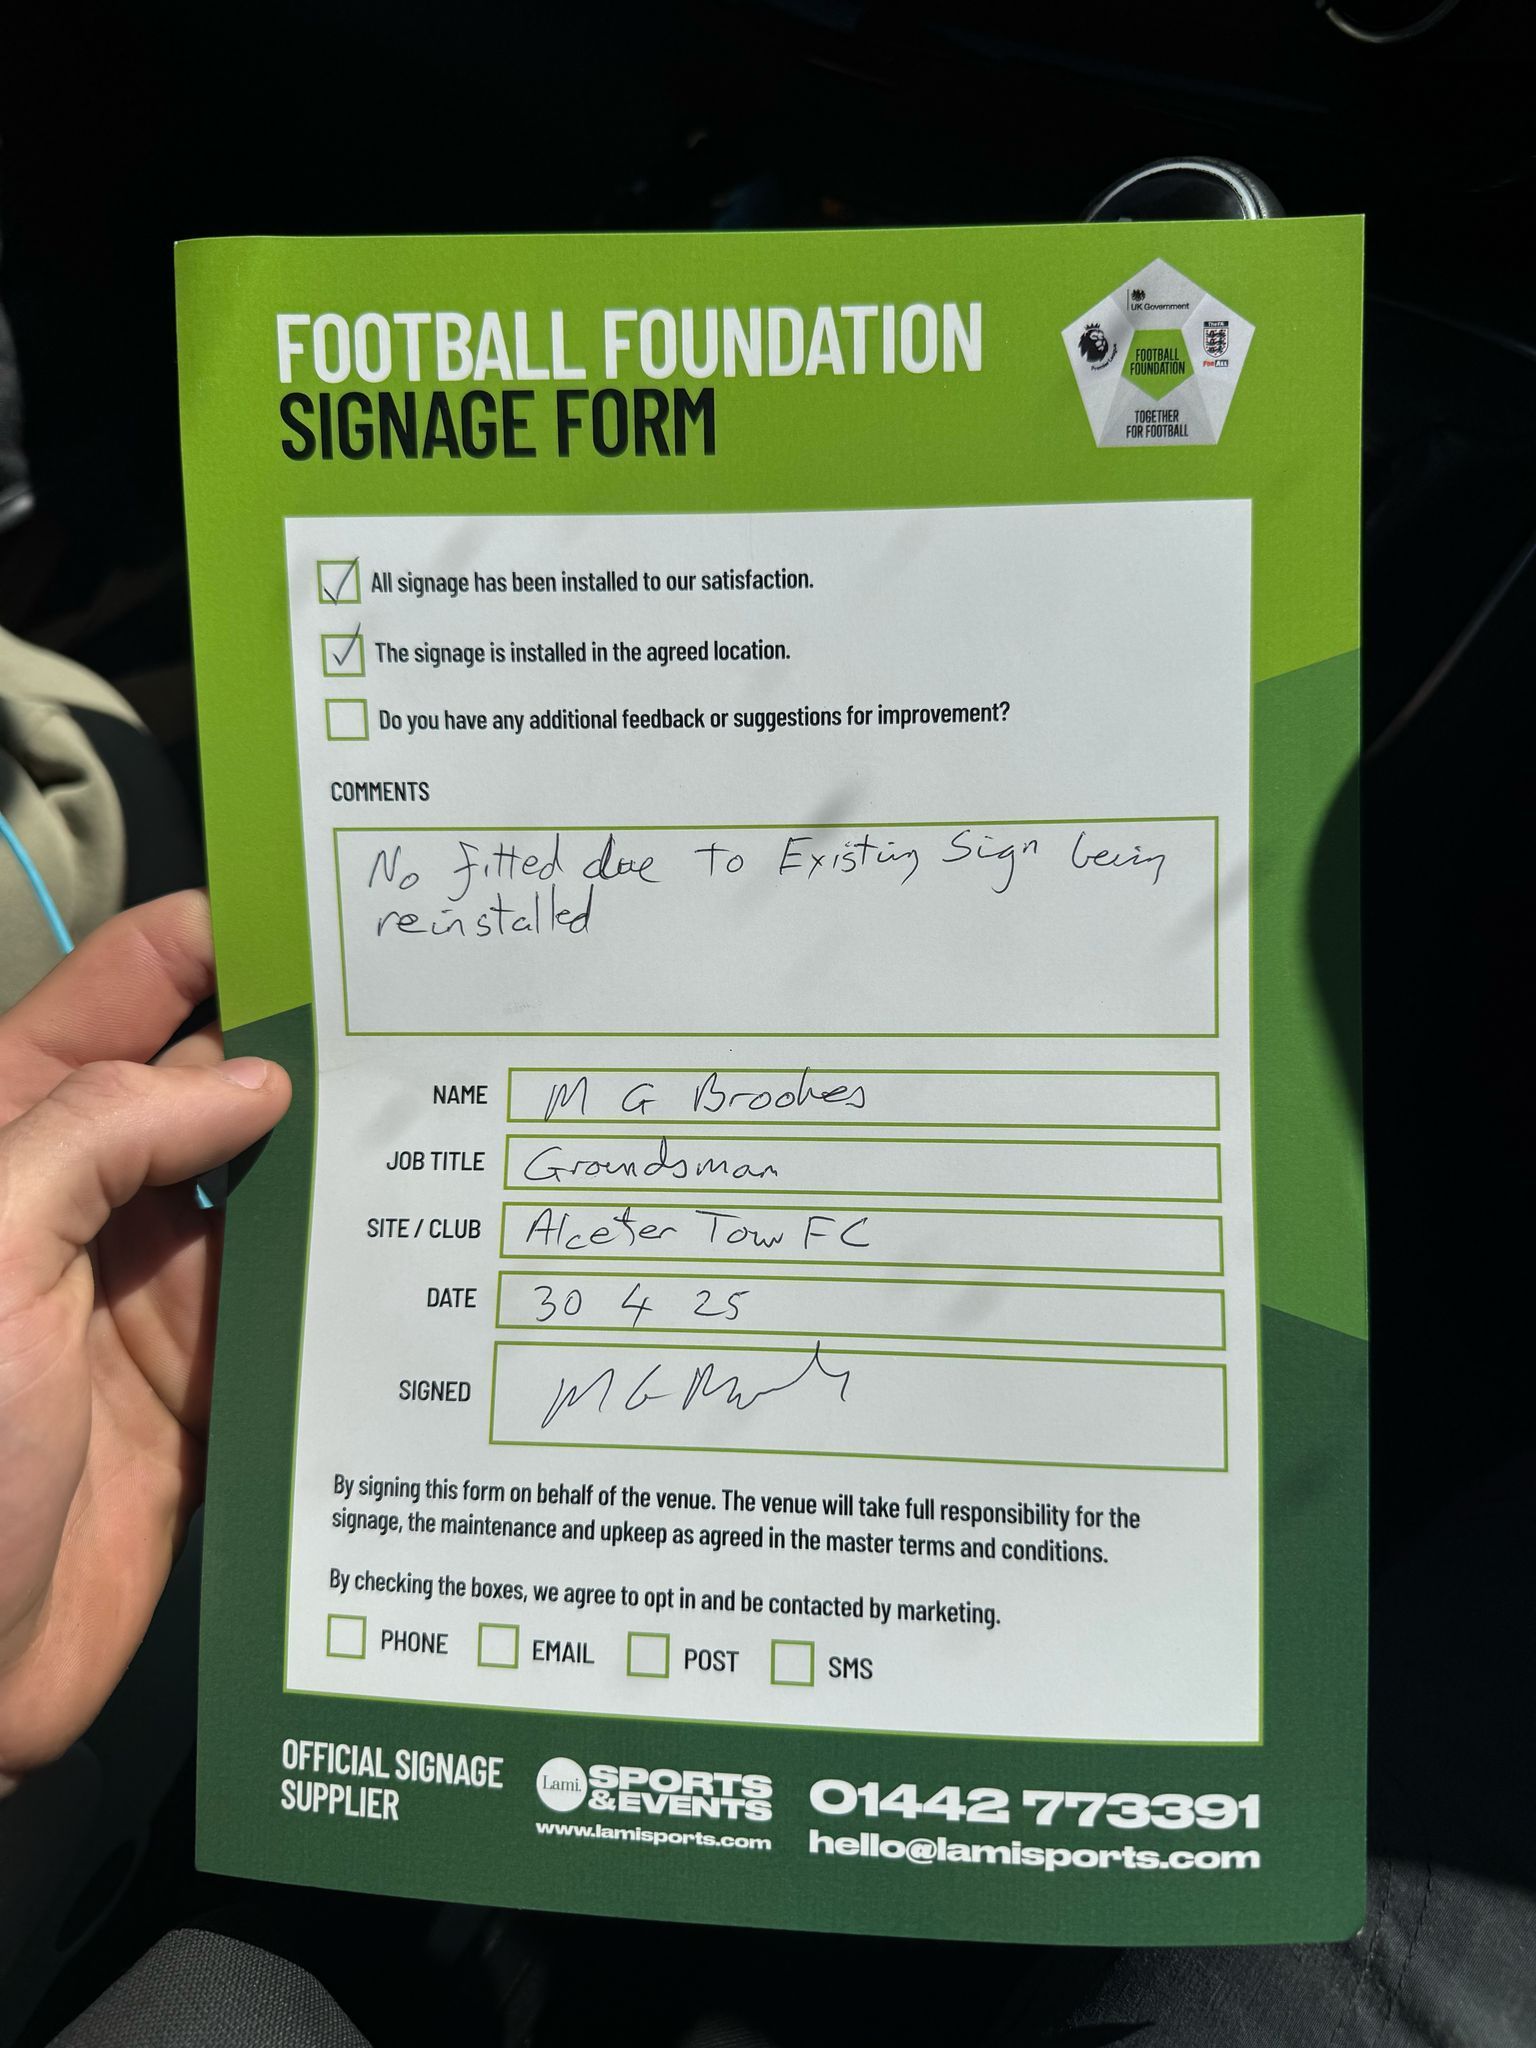 FOOTBALL FOUNDATION
SIGNAGE FORM
UK Government
Premier League
The FA
For ALL
FOOTBALL
FOUNDATION
TOGETHER
FOR FOOTBALL
All signage has been installed to our satisfaction.
The signage is installed in the agreed location.
Do you have any additional feedback or suggestions for improvement?
COMMENTS
No fitted due to Existing Sign being
reinstalled
NAME M G Brookes
JOB TITLE Groundsman
SITE / CLUB Alceter Town FC
DATE 30 4 25
SIGNED M G
By signing this form on behalf of the venue. The venue will take full responsibility for the
signage, the maintenance and upkeep as agreed in the master terms and conditions.
By checking the boxes, we agree to opt in and be contacted by marketing.
PHONE EMAIL POST SMS
OFFICIAL SIGNAGE
SUPPLIER
Lami. SPORTS
&EVENTS
www.lamisports.com
01442 773391
hello@lamisports.com